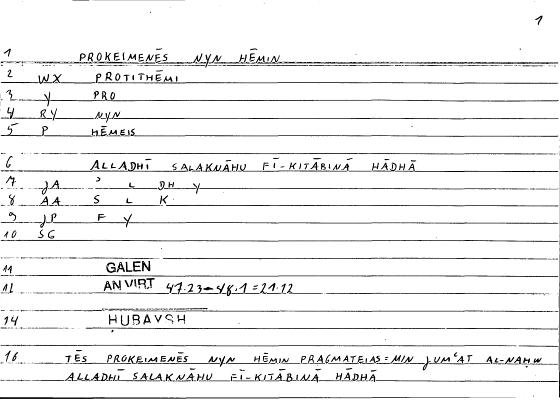 1
1 PROKEIMENĒS NYN HĒMIN
2 WX PROTITHĒMI
3 Y PRO
4 RY NYN
5 P HĒMEIS
6 ALLADHĪ SALAKNĀHU FĪ-KITĀBINĀ HĀDHĀ
7 JA ʾ L DH Y
8 AA S L K
9 JP F Y
10 SG
11 GALEN
12 AN VIRT 47.23-48.1=21.12
14 HUBAYSH
16 TĒS PROKEIMENĒS NYN HĒMIN PRAGMATEIAS=MIN JUMʿAT AL-NAḤW
ALLADHĪ SALAKNĀHU FĪ-KITĀBINĀ HĀDHĀ